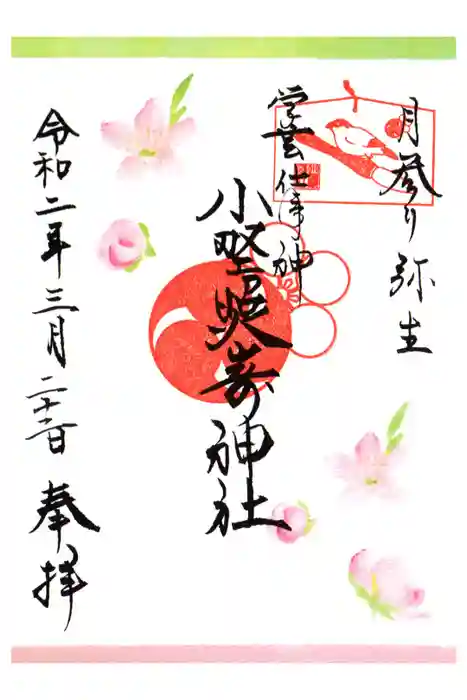 月参り 弥生
学芸 仕事の神
小野照崎神社
令和二年三月二十二日 奉拝